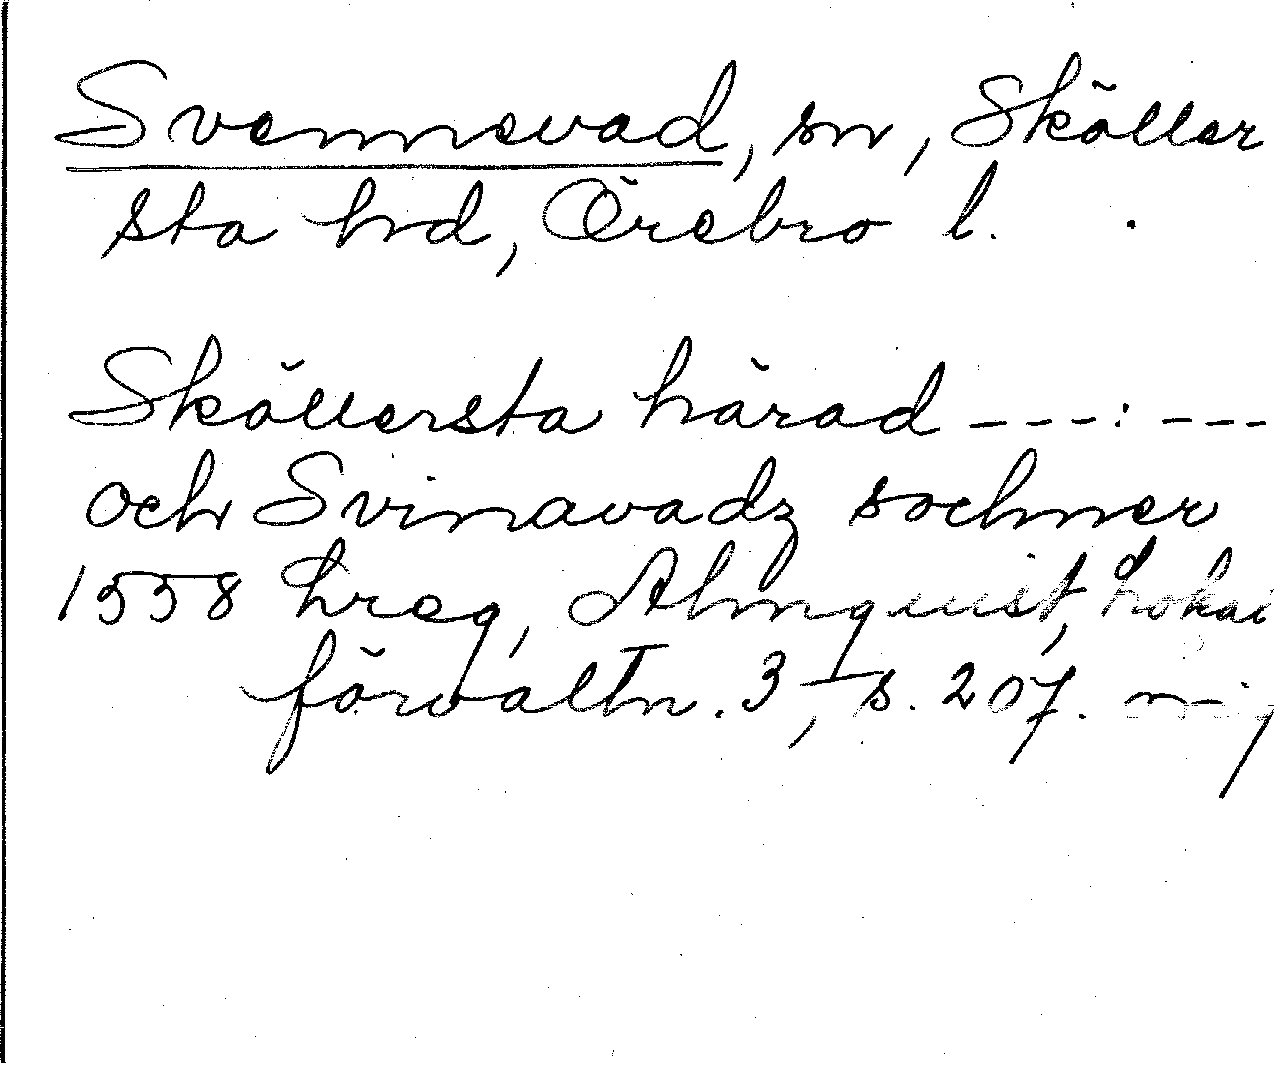 Svennevad, sn, Sköller
sta hrd, Örebro l.
Sköllersta härad ---:---
och Svinavadz sochner
1558 hreg, Almquist, Lokal
förvaltn. 3, s. 207.